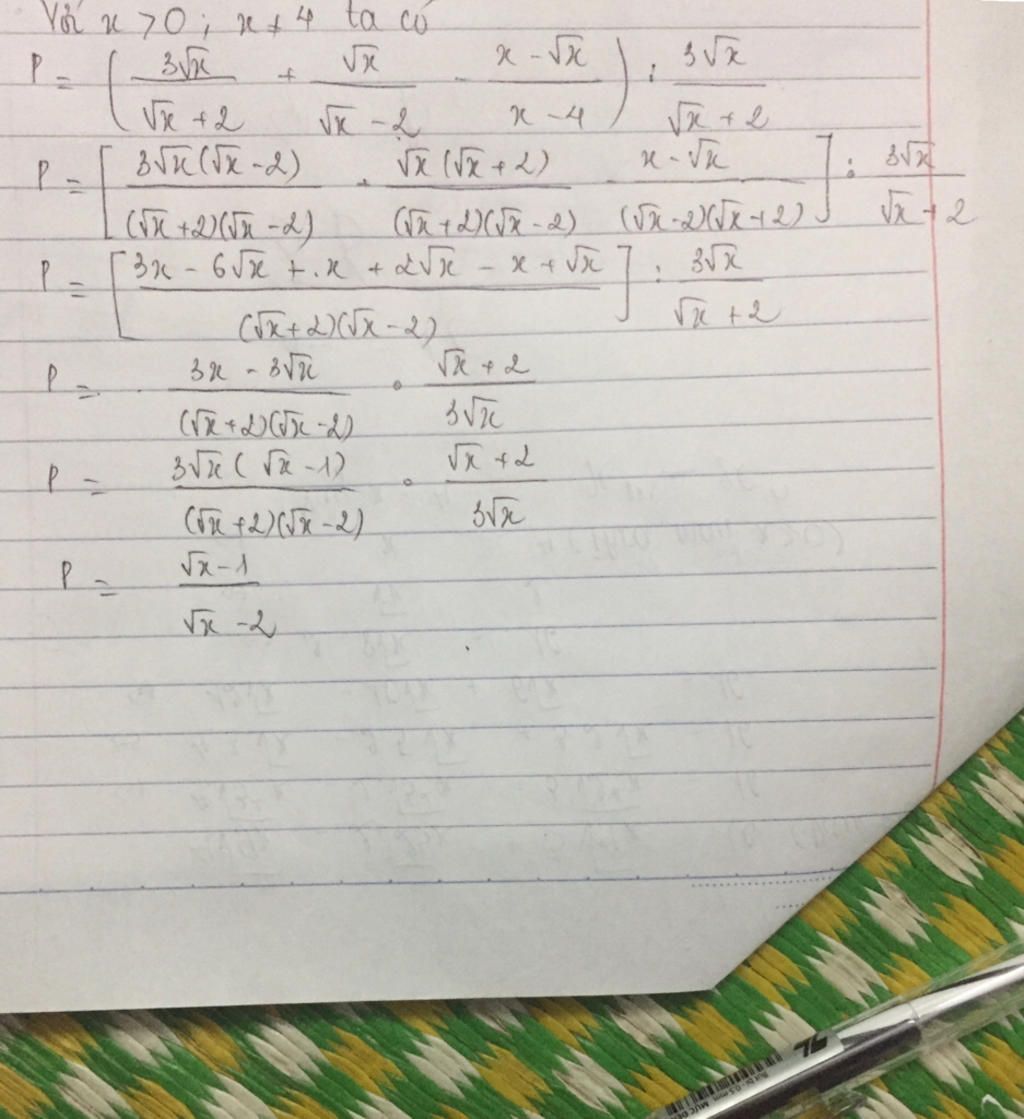 Với x > 0 ; x ≠ 4 ta có
P = ( 3√x / (√x + 2) + √x / (√x - 2) - (x - √x) / (x - 4) ) : 3√x / (√x + 2)
P = [ 3√x(√x - 2) / (√x + 2)(√x - 2) + √x(√x + 2) / (√x + 2)(√x - 2) - (x - √x) / (√x - 2)(√x + 2) ] : 3√x / (√x + 2)
P = [ (3x - 6√x + x + 2√x - x + √x) / (√x + 2)(√x - 2) ] : 3√x / (√x + 2)
P = (3x - 3√x) / (√x + 2)(√x - 2) · (√x + 2) / 3√x
P = 3√x(√x - 1) / (√x + 2)(√x - 2) · (√x + 2) / 3√x
P = (√x - 1) / (√x - 2)
TL